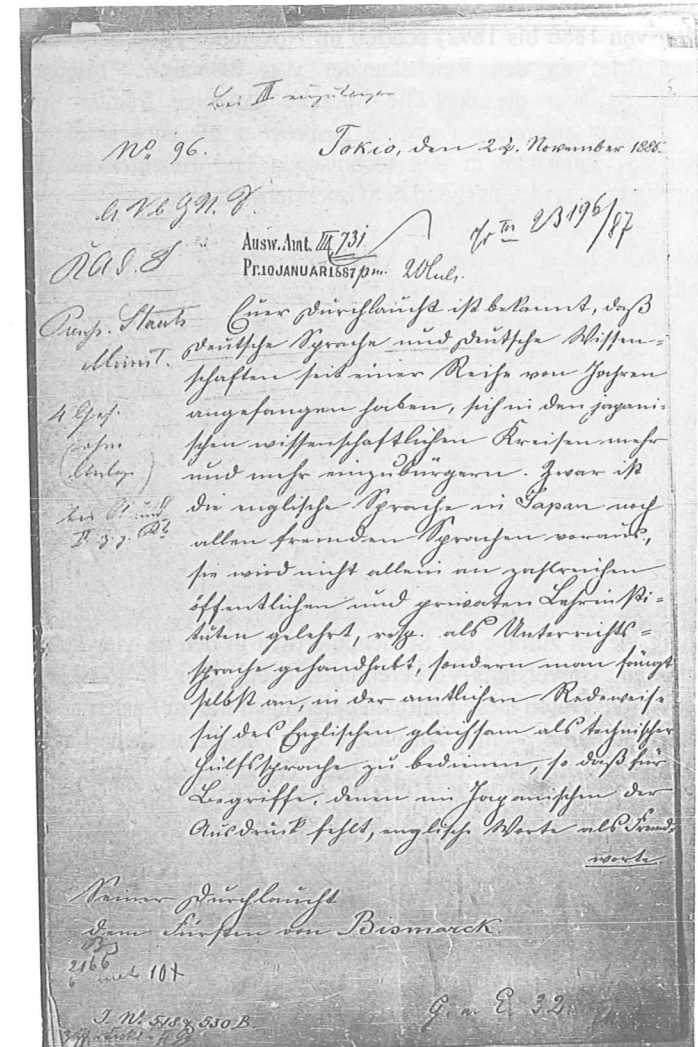 von 1886 bis 1892)
Bei III einzulegen
Nº 96.
Tokio, den 22. November 1886.
Ausw. Amt. III 731
Pr. 10 JANUAR 1887 pm.
Euer Durchlaucht ist bekannt, daß
deutsche Sprache und deutsche Wissen-
schaften seit einer Reihe von Jahren
angefangen haben, sich in den japani-
schen wissenschaftlichen Kreisen mehr
und mehr einzubürgern. Zwar ist
die englische Sprache in Japan noch
allen fremden Sprachen voraus,
sie wird nicht allein an zahlreichen
öffentlichen und privaten Lehrinsti-
tuten gelehrt, resp. als Unterrichts-
sprache gehandhabt, sondern man fängt
selbst an, in der amtlichen Redeweise
sich des Englischen gleichsam als technischer
Hülfssprache zu bedienen, so daß für
Begriffe, denen im Japanischen der
Ausdruck fehlt, englische Worte als Fremd-
worte
Seiner Durchlaucht
dem Fürsten von Bismarck.